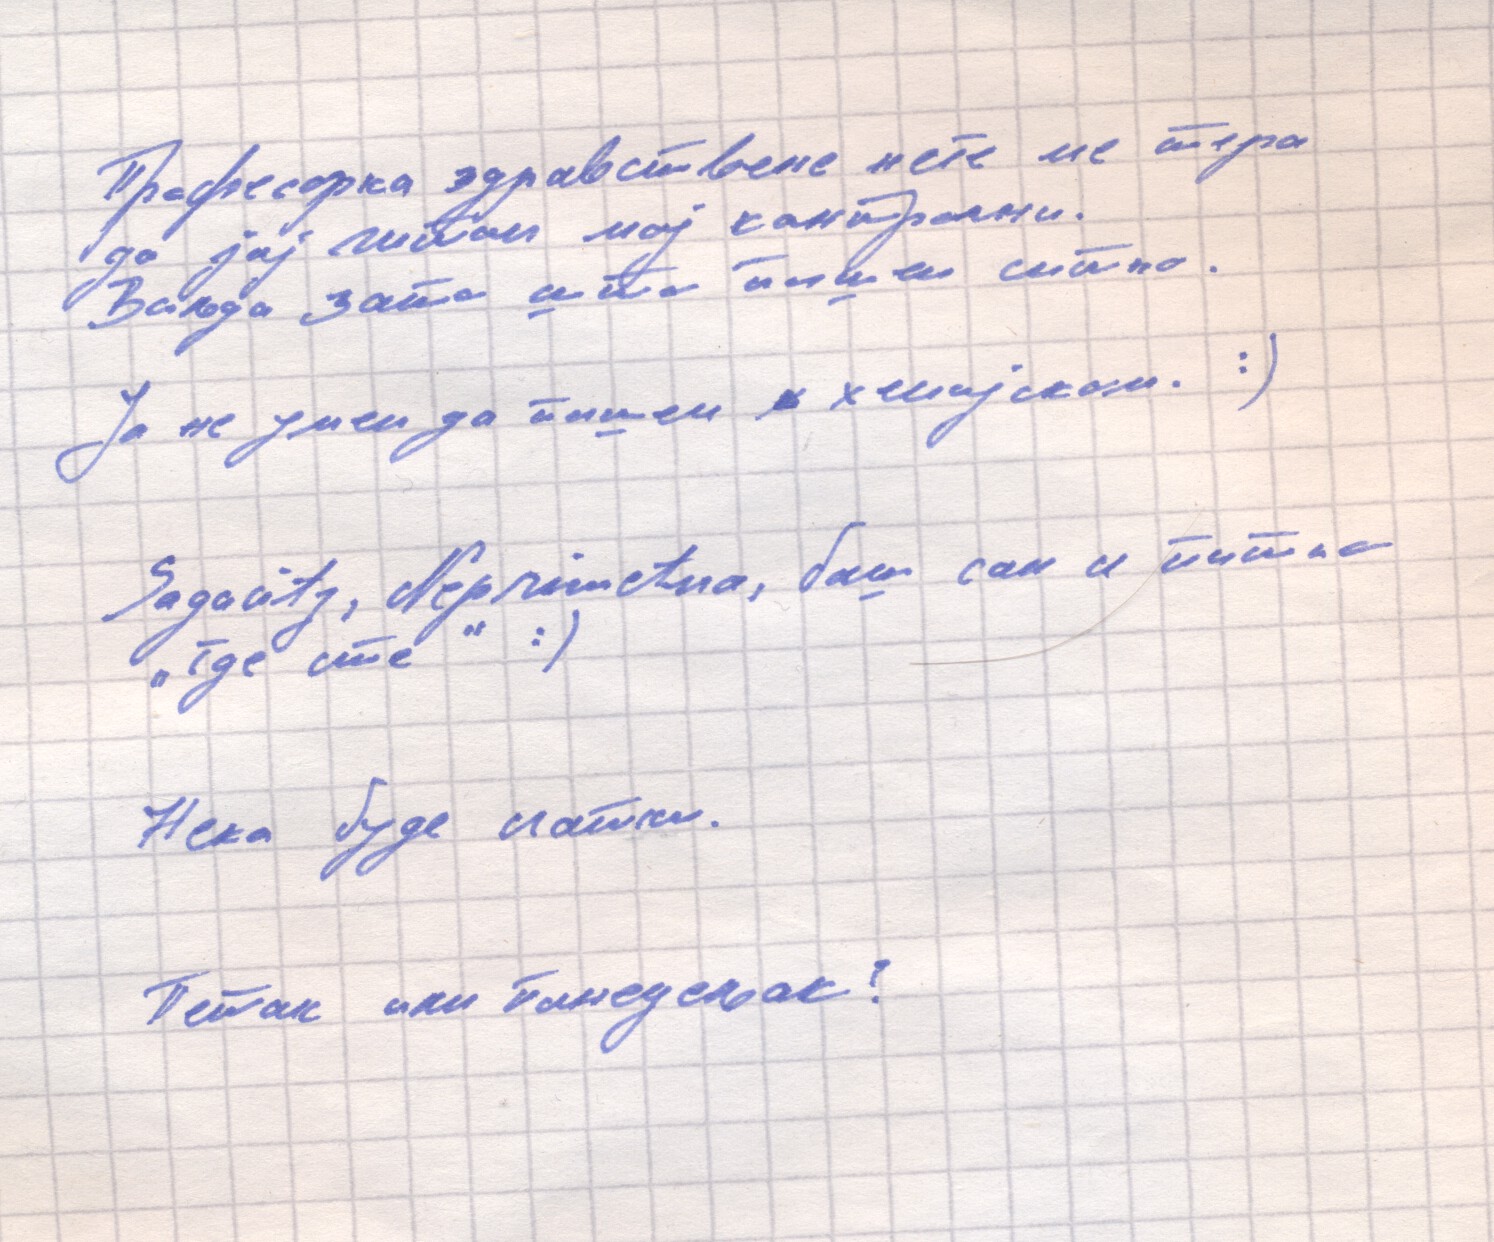 Професорка здравствене неће ме тера
да јој читам мој контролни.
Ваљда зато што пишем ситно.
Ја не умем да пишем хемијском. :)
Sagacity, Neprimetna, баш сам и питао
„где сте“ :)
Нека буде слатки.
Петак или понедељак?